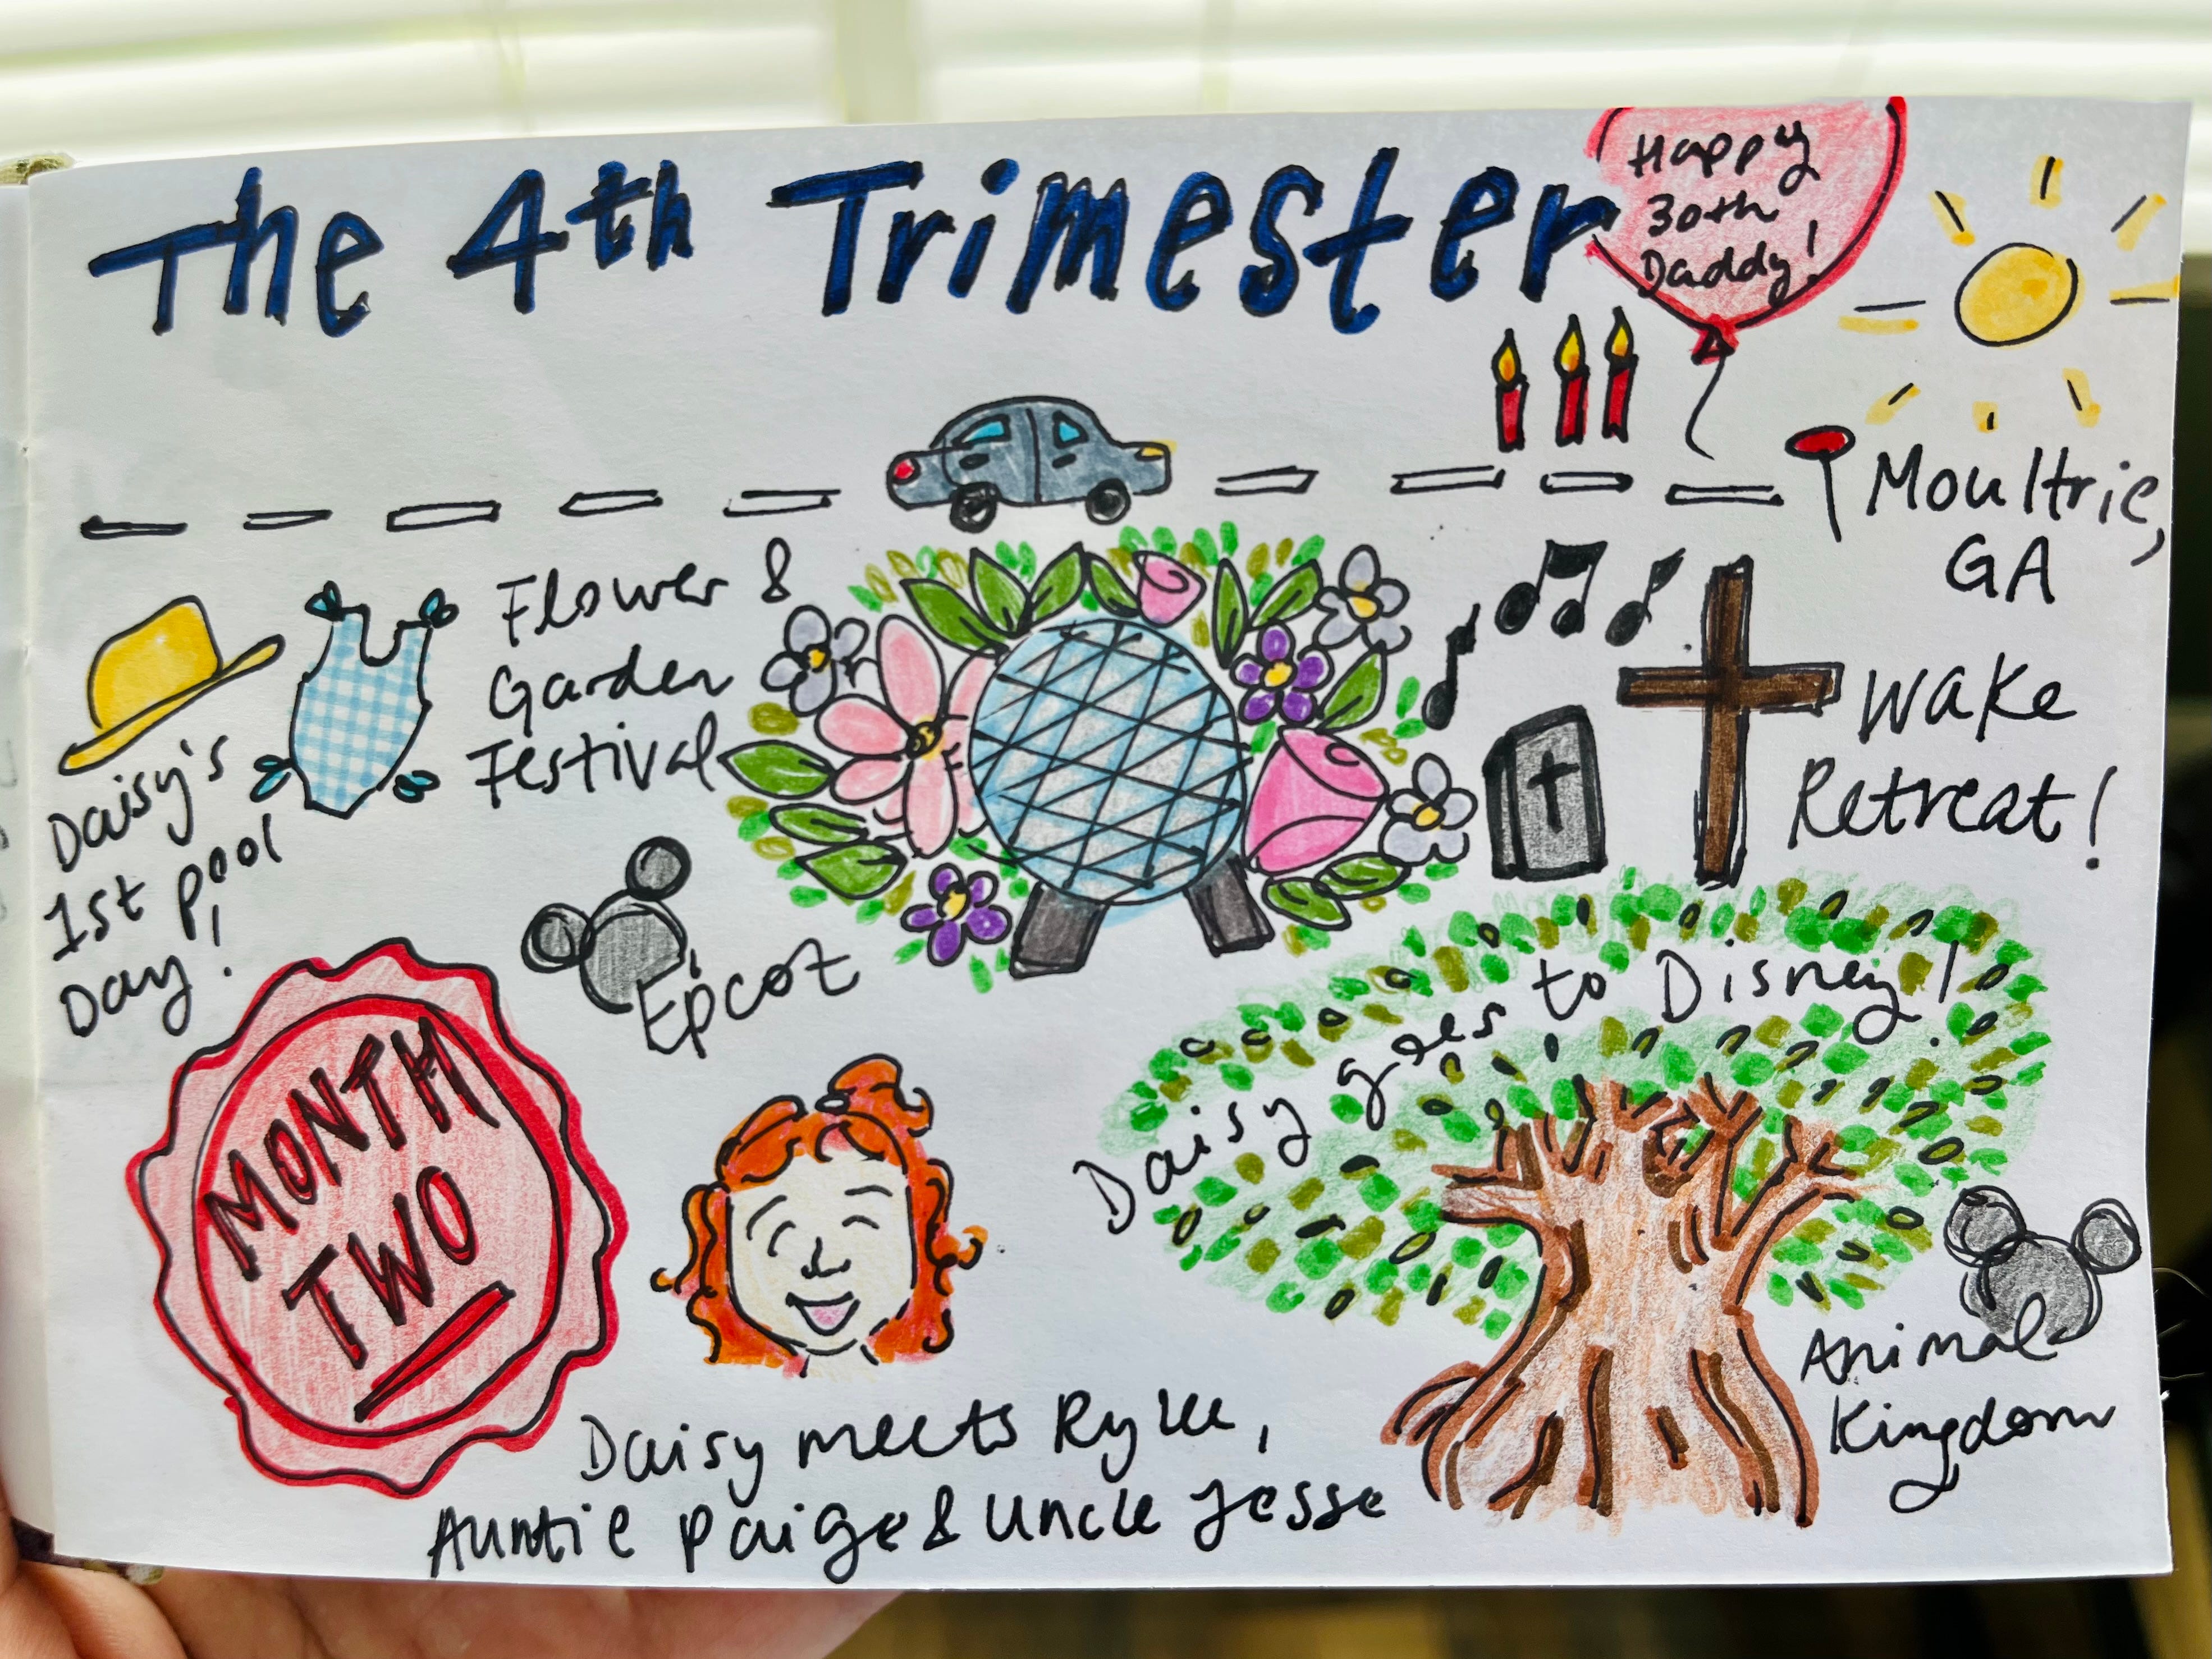 The 4th Trimester
Happy
30th
Daddy!
Moultrie,
GA
Daisy's
1st pool
Day!
Flower &
Garden
Festival
Epcot
Wake
Retreat!
Daisy goes to Disney!
Animal
Kingdom
MONTH
TWO
Daisy meets Rylee,
Auntie Paige & Uncle Jesse